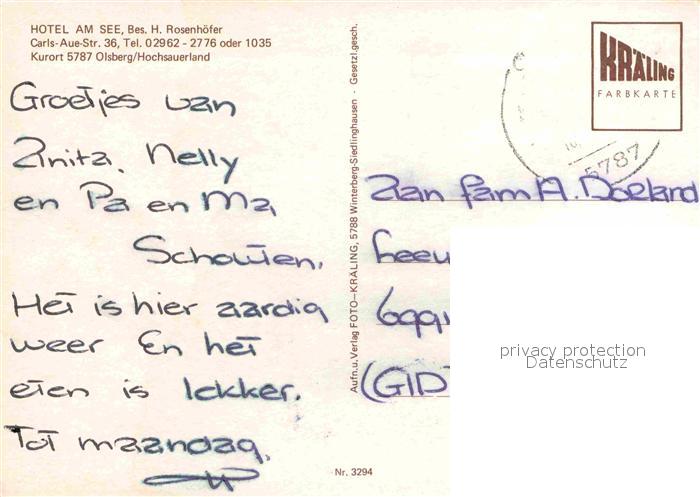 HOTEL AM SEE, Bes. H. Rosenhöfer
Carls-Aue-Str. 36, Tel. 02962 - 2776 oder 1035
Kurort 5787 Olsberg/Hochsauerland
Groetjes van
Anita, Nelly
en Pa en Ma,
Schouten.
Het is hier aardig
weer En het
eten is lekker.
Tot maandag.
Aufn. u. Verlag FOTO-KRÄLING, 5788 Winterberg-Siedlinghausen · Gesetzl. gesch.
Nr. 3294
KRÄLING
FARBKARTE
5787
Aan fam A. Doeland
Leeu
(GID
privacy protection
Datenschutz